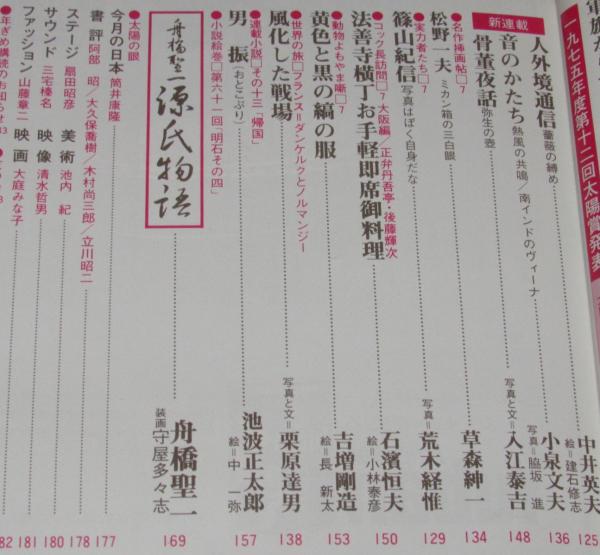 一九七五年度第十二回太陽賞発表
人外境通信 薔薇の縛め
中井英夫
絵=建石修志
125
新連載
音のかたち 熱風の共鳴/南インドのヴィーナ
小泉文夫
写真=脇坂 進
136
骨董夜話 弥生の壺
写真と文=入江泰吉
148
●名作挿画帖□7
松野一夫 ミカン箱の三白眼
草森紳一
134
●実力者たち□7
篠山紀信 写真はぼく自身だな
写真=荒木経惟
129
●コック長訪問□7 大阪編/正弁丹吾亭・後藤輝次
法善寺横丁お手軽即席御料理
石濱恒夫
絵=小林泰彦
150
●動物よもやま噺□7
黄色と黒の縞の服
吉増剛造
絵=長 新太
153
●世界の旅□フランス=ダンケルクとノルマンジー
風化した戦場
写真と文=栗原達男
138
●連載小説□その十三「帰国」
男 振(おとこぶり)
池波正太郎
絵=中 一弥
157
●小説絵巻□第六十一回「明石その四」
舟橋聖一 源氏物語
舟橋聖一
装画 守屋多々志
169
●太陽の眼
今月の日本 筒井康隆
177
書 評 阿部 昭/大久保喬樹/木村尚三郎/立川昭二
178
ステージ 扇田昭彦 美 術 池内 紀
180
サウンド 三宅榛名 映 像 清水哲男
181
ファッション 山藤章二 映 画 大庭みな子
182
●年ぎめ購読のお知らせ